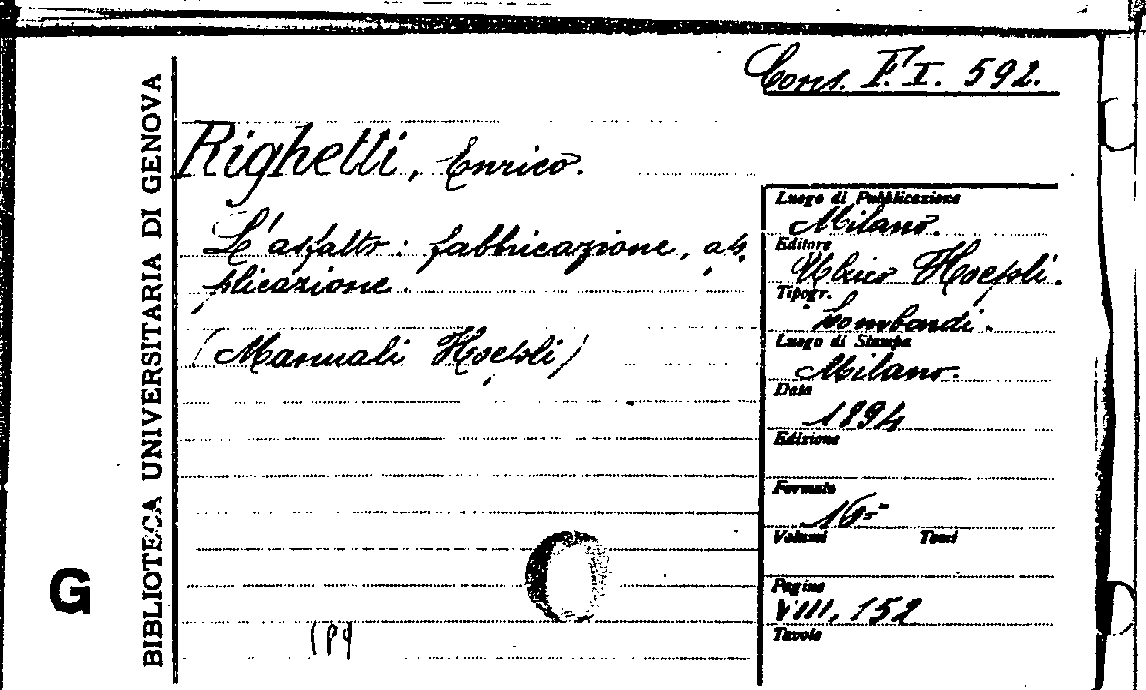 Cons. F. I. 592.
Righetti, Enrico.
L'asfalto: fabbricazione, ap-
plicazione.
(Manuali Hoepli)
BIBLIOTECA UNIVERSITARIA DI GENOVA
G
Luogo di Pubblicazione
Milano.
Editore
Ulrico Hoepli.
Tipogr.
Lombardi.
Luogo di Stampa
Milano.
Data
1894
Edizione
Formato
16º
Volumi Tomi
Pagine
VIII, 152
Tavole